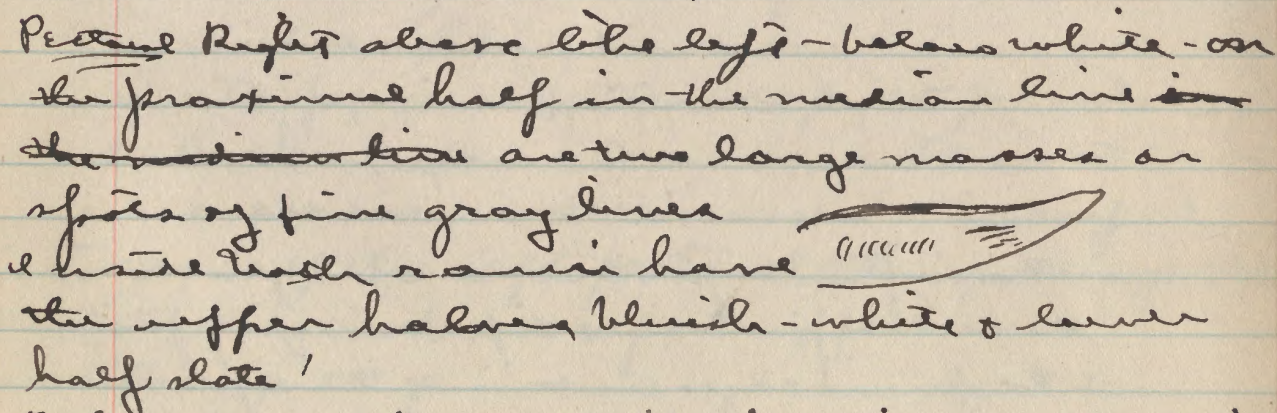 Pectoral Right above like left - below white - on
the proximal half in the median line in
the median line are two large masses or
spots of fine gray lines
Inside both rami have
the upper halves bluish-white & lower
half slate